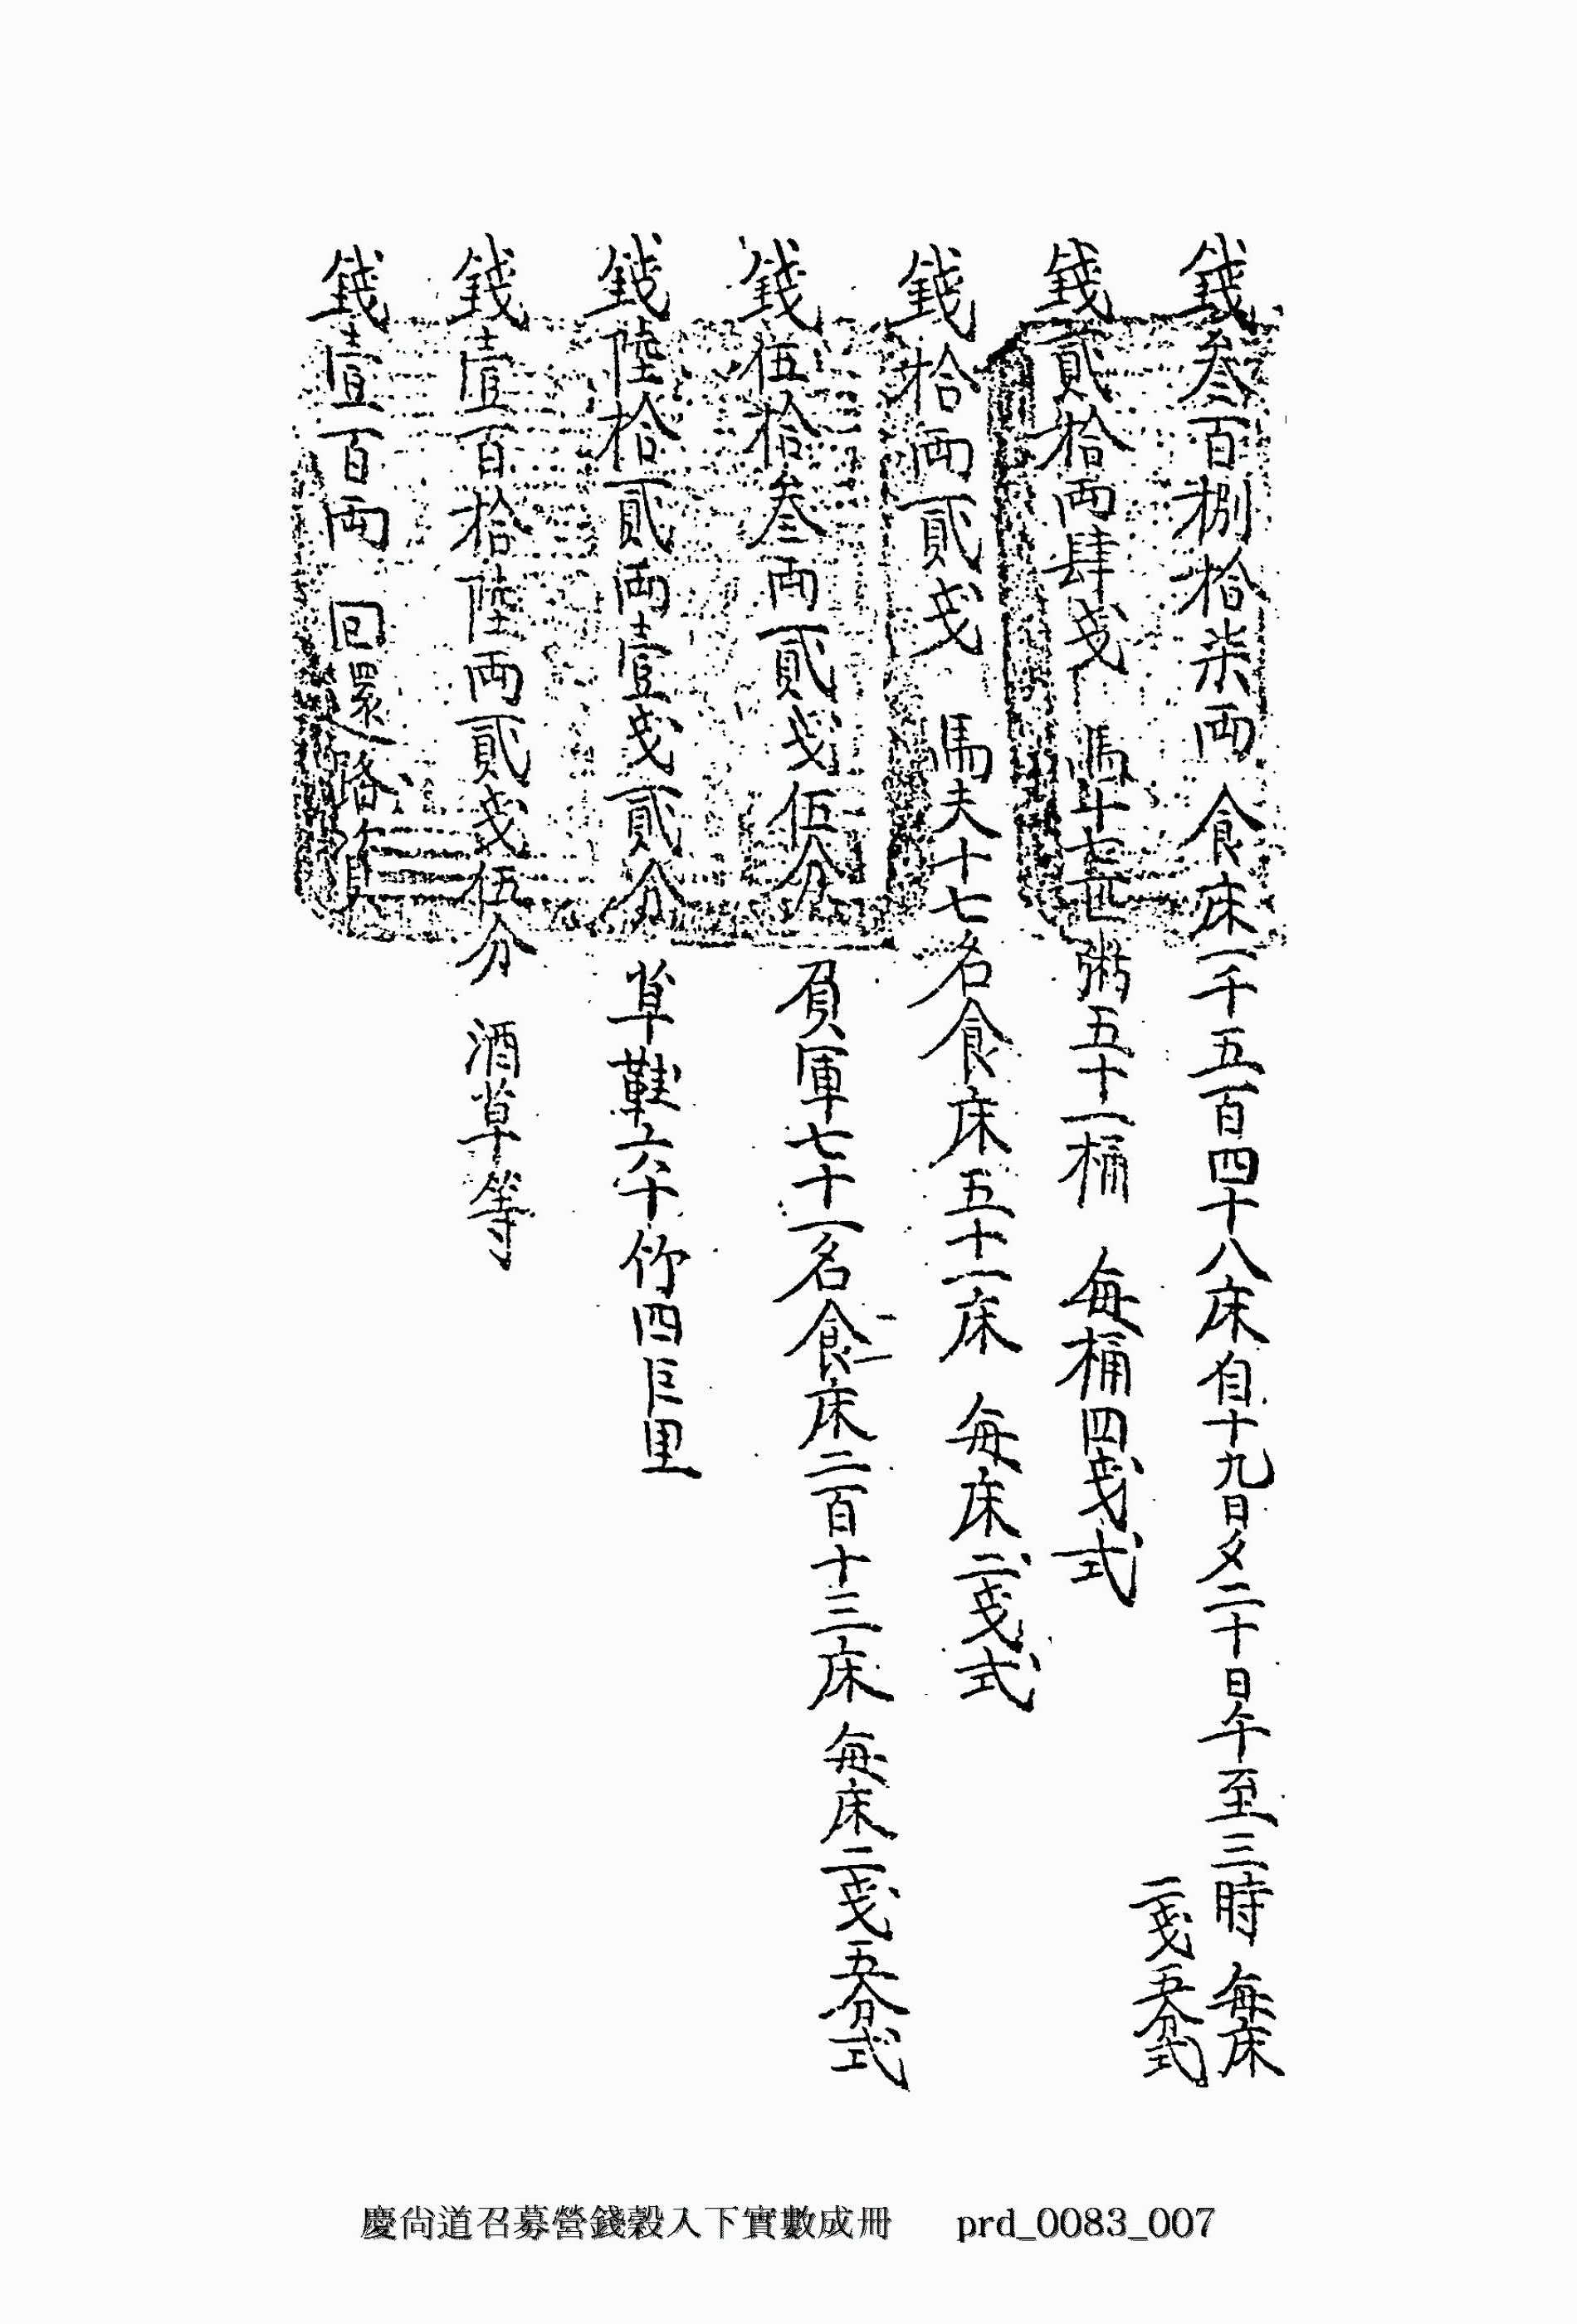 錢叄百捌拾柒兩 食床一千五百四十八床 自十九日夕二十日午至三時 每床二戔五分式
錢貳拾兩肆戔 馬十七匹粥五十一桶 每桶四戔式
錢拾兩貳戔 馬夫十七名食床五十一床 每床二戔式
錢伍拾叄兩貳戔伍分 負軍七十一名食床二百十三床 每床二戔五分式
錢陸拾貳兩壹戔貳分 草鞋六十竹四巨里
錢壹百拾陸兩貳戔伍分 酒草等
錢壹百兩 回還路資
慶尙道召募營錢穀入下實數成冊 prd_0083_007